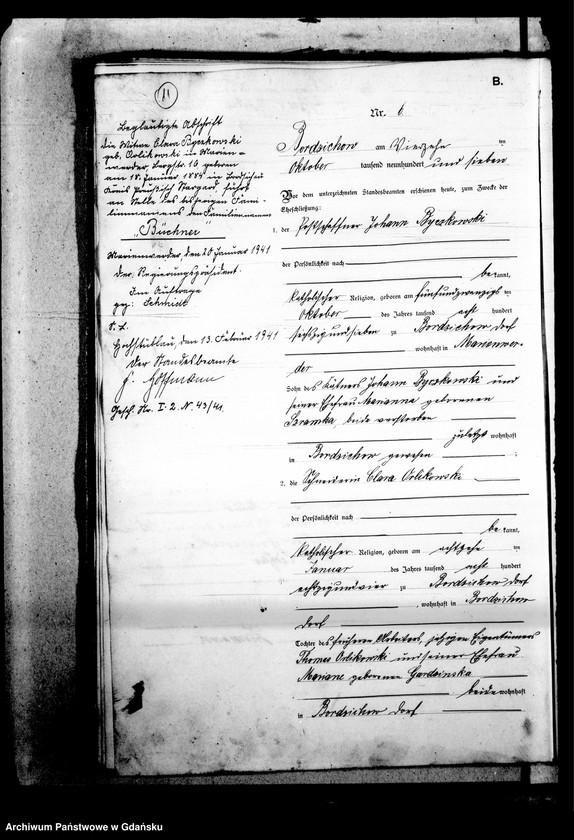 B.
11
Nr. 6
Beglaubigte Abschrift
die Witwe Clara Byczkowski
geb. Orlikowski in Marien=
werder, Bergstr. 16, geboren
am 18. Januar 1884 in Bordzichow
Kreis Preußisch Stargard, führt
an Stelle des bisherigen Fami-
liennamens den Familiennamen
"Büchner"
Marienwerder, den 20 Januar 1941
Der Regierungspräsident.
Im Auftrage
gez: Schmidt
Hochstüblau, den 13. Februar 1941
Der Standesbeamte
Hoffmann
Gesch. Nr. I. 2. N. 43/41.
Bordzichow am Vierzehn ten
Oktober tausend neunhundert und sieben
Vor dem unterzeichneten Standesbeamten erschienen heute, zum Zwecke der
Eheschließung:
1. der Postschaffner Johann Byczkowski
der Persönlichkeit nach
be kannt,
katholischer Religion, geboren am fünfundzwanzigs ten
Oktober des Jahres tausend acht hundert
sechzigundsieben zu Bordzichow Dorf
, wohnhaft in Marienwer-
der
Sohn des Kätners Johann Byczkowski und
seiner Ehefrau Marianna geborenen
Szramka, beide verstorben
zuletzt wohnhaft
in Bordzichow gewesen ;
2. die Schneiderin Clara Orlikowski
der Persönlichkeit nach
be kannt,
katholischer Religion, geboren am achtzehn ten
Januar des Jahres tausend acht hundert
achtzigundvier zu Bordzichow Dorf
, wohnhaft in Bordzichow
Dorf
Tochter des früheren Arbeiters, jetzigen Eigentümers
Thomas Orlikowski und seiner Ehefrau
Mariane geborenen Gardzinska
beide wohnhaft
in Bordzichow Dorf
Archiwum Państwowe w Gdańsku